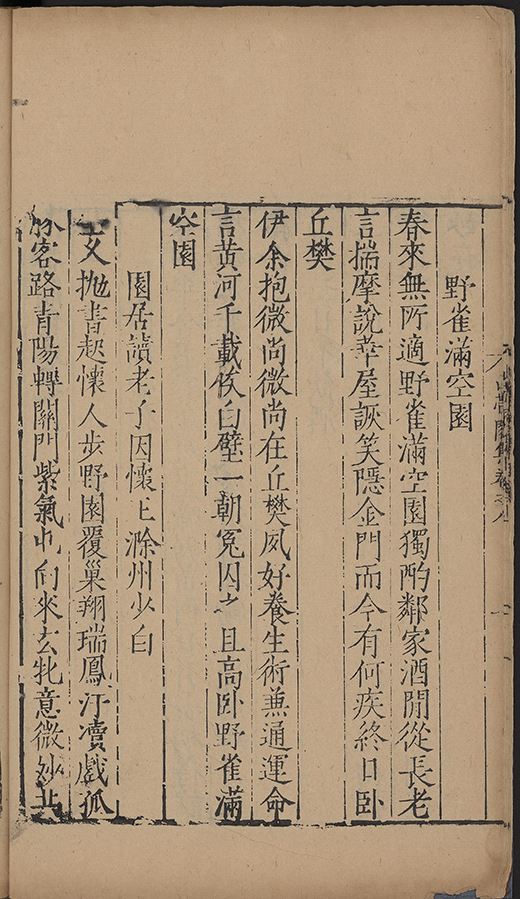 野雀滿空園
春來無所適野雀滿空園獨酌鄰家酒閒從長老
言揣摩說華屋詼笑隱金門而今有何疾終日卧
丘樊
伊余抱微尚微尚在丘樊夙好養生術兼通運命
言黃河千載俟白璧一朝冤囚之且高卧野雀滿
空園
園居讀老子因懷王滁州少白
文抛書起懷人步野園覆巢翔瑞鳳汙瀆戲孤
豚客路青陽轉關門紫氣屯向來玄牝意微妙共